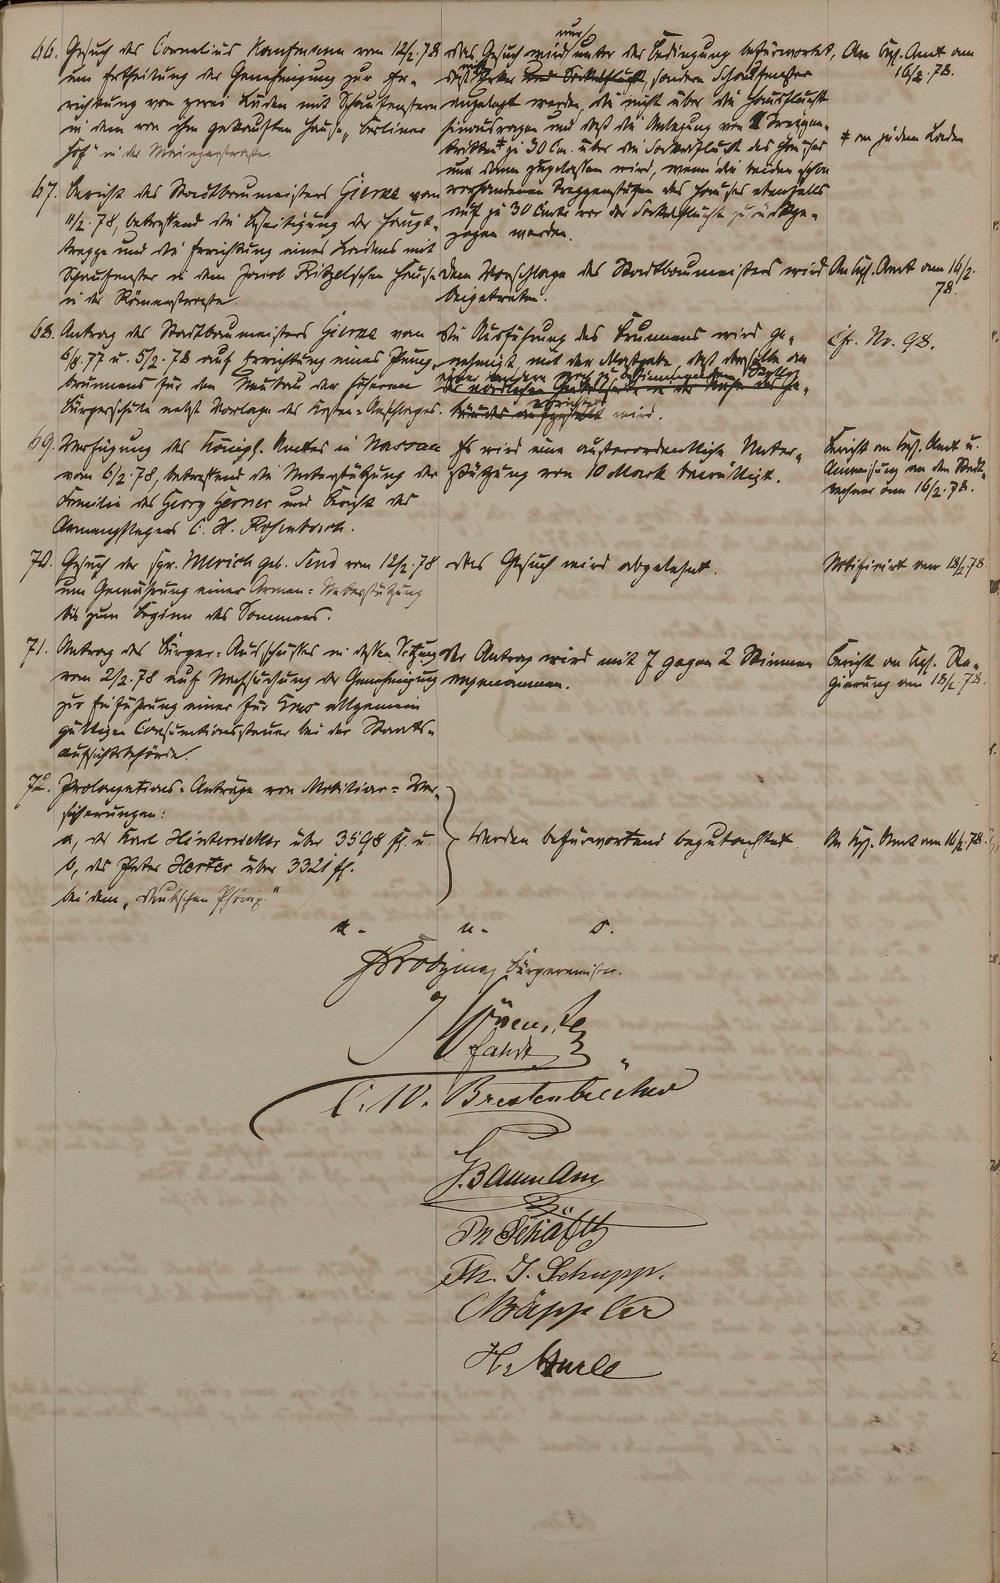 66. Gesuch des Cornelius Kaufmann vom 12/2.78
um Ertheilung der Genehmigung zur Er-
richtung von zwei Läden mit Schaufenstern
in dem von ihm gekauften Hause „Berliner
Hof“ in der Mainzerstrasse.
nur
Das Gesuch wird unter der Bedingung befürwortet,
daß keine Sockelflucht, sondern Schaufenster
angelegt werden, die nicht über die Hausflucht
hinausragen und daß die Anlegung von Treppen-
tritten * zu 30 Cm. über die Sockelflucht des Hauses
nur dann zugelassen wird, wenn die beiden schon
vorhandenen Treppenstufen des Hauses ebenfalls
auf zu 30 Cmtr vor der Sockelflucht zurückge-
zogen werden.
An Kgl. Amt am
16/2.78.
* an jedem Laden
67. Bericht des Stadtbaumeisters Gierke vom
11/2.78, betreffend die Beseitigung der Haupt-
treppe und die Errichtung eines Ladens mit
Schaufenster in dem Jacob Kitzel'schen Hause
in der Römerstrasse.
Dem Vorschlage des Stadtbaumeisters wird
beigetreten.
An Kgl. Amt am 16/2.
78.
68. Antrag des Stadtbaumeisters Gierke vom
6/8.77 u. 5/2.78 auf Errichtung eines Pump-
brunnens für den Neubau der höheren
Bürgerschule nebst Vorlage des Kosten-Anschlages.
Die Ausführung des Brunnens wird ge-
nehmigt mit der Maßgabe, daß derselbe an
einer andern noch zu bestimmenden Stelle
errichtet
wird.
Cfr. No. 98.
69. Verfügung des Königl. Amtes in Nassau
vom 6/2.78, betreffend die Unterstützung der
Familie des Georg Hesser und Bericht des
Armenpflegers C. H. Rosenbach.
Es wird eine außerordentliche Unter-
stützung von 10 Mark bewilligt.
Bericht an Kgl. Amt u.
Anweisung an den Stadt-
rechner am 16/2.78.
70. Gesuch der Chr. Merich geb. Send vom 12/2.78
um Gewährung einer Armen-Unterstützung
bis zum Beginn des Sommers.
Das Gesuch wird abgelehnt.
Notifizirt am 18/2.78
71. Antrag des Bürger-Ausschusses in dessen Sitzung
vom 2/2.78 auf Nachsuchung der Genehmigung
zur Einführung einer für Ems allgemein
gültigen Consumtionssteuer bei der Staats-
aufsichtsbehörde.
Der Antrag wird mit 7 gegen 2 Stimmen
angenommen.
Bericht an Kgl. Re-
gierung am 18/2.78.
72. Prolongations-Anträge von Mobiliar-Ver-
sicherungen:
a, des Karl Hinterwälder über 3598 fl. u.
b, des Peter Herter über 3321 fl.
bei dem „Deutschen Phönix.“
Werden befürwortend begutachtet.
An Kgl. Amt am 16/2.78.
a. u. s.
Bürgermeister.
C. W. Breitenbücher
G. Baumann
Ph Schäfer
Ph. J. Schupp.
Bäppler
H. Merle